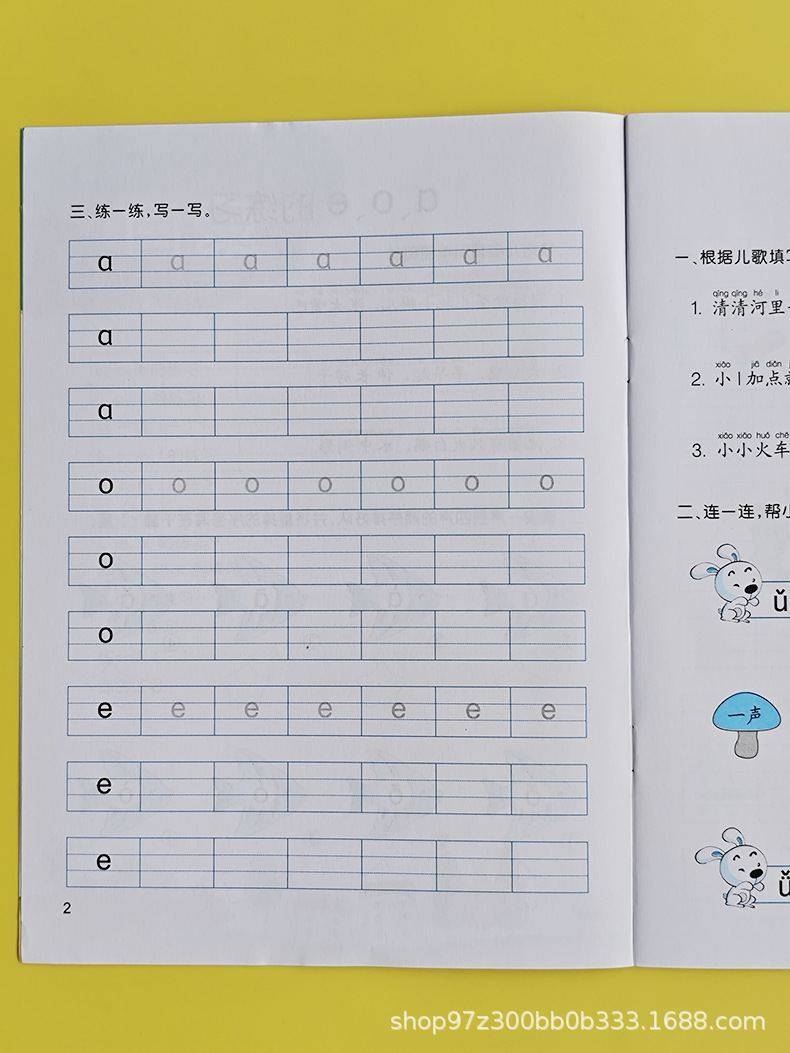 三、练一练，写一写。
ɑ ɑ ɑ ɑ ɑ ɑ ɑ
ɑ
ɑ
o o o o o o o
o
o
e e e e e e e
e
e
2
一、根据儿歌填
qīng qīng hé li
1. 清清河里
xiǎo jiā diǎn
2. 小 l 加点
xiǎo xiǎo huǒ chē
3. 小小火车
二、连一连，帮小
ǔ
一声
ǚ
shop97z300bb0b333.1688.com